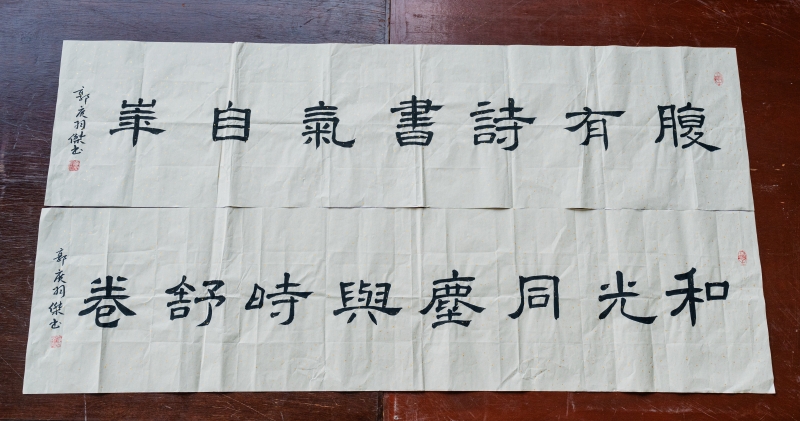 腹有詩書氣自華
郭庚羽傑书
和光同塵與時舒卷
郭庚羽傑书